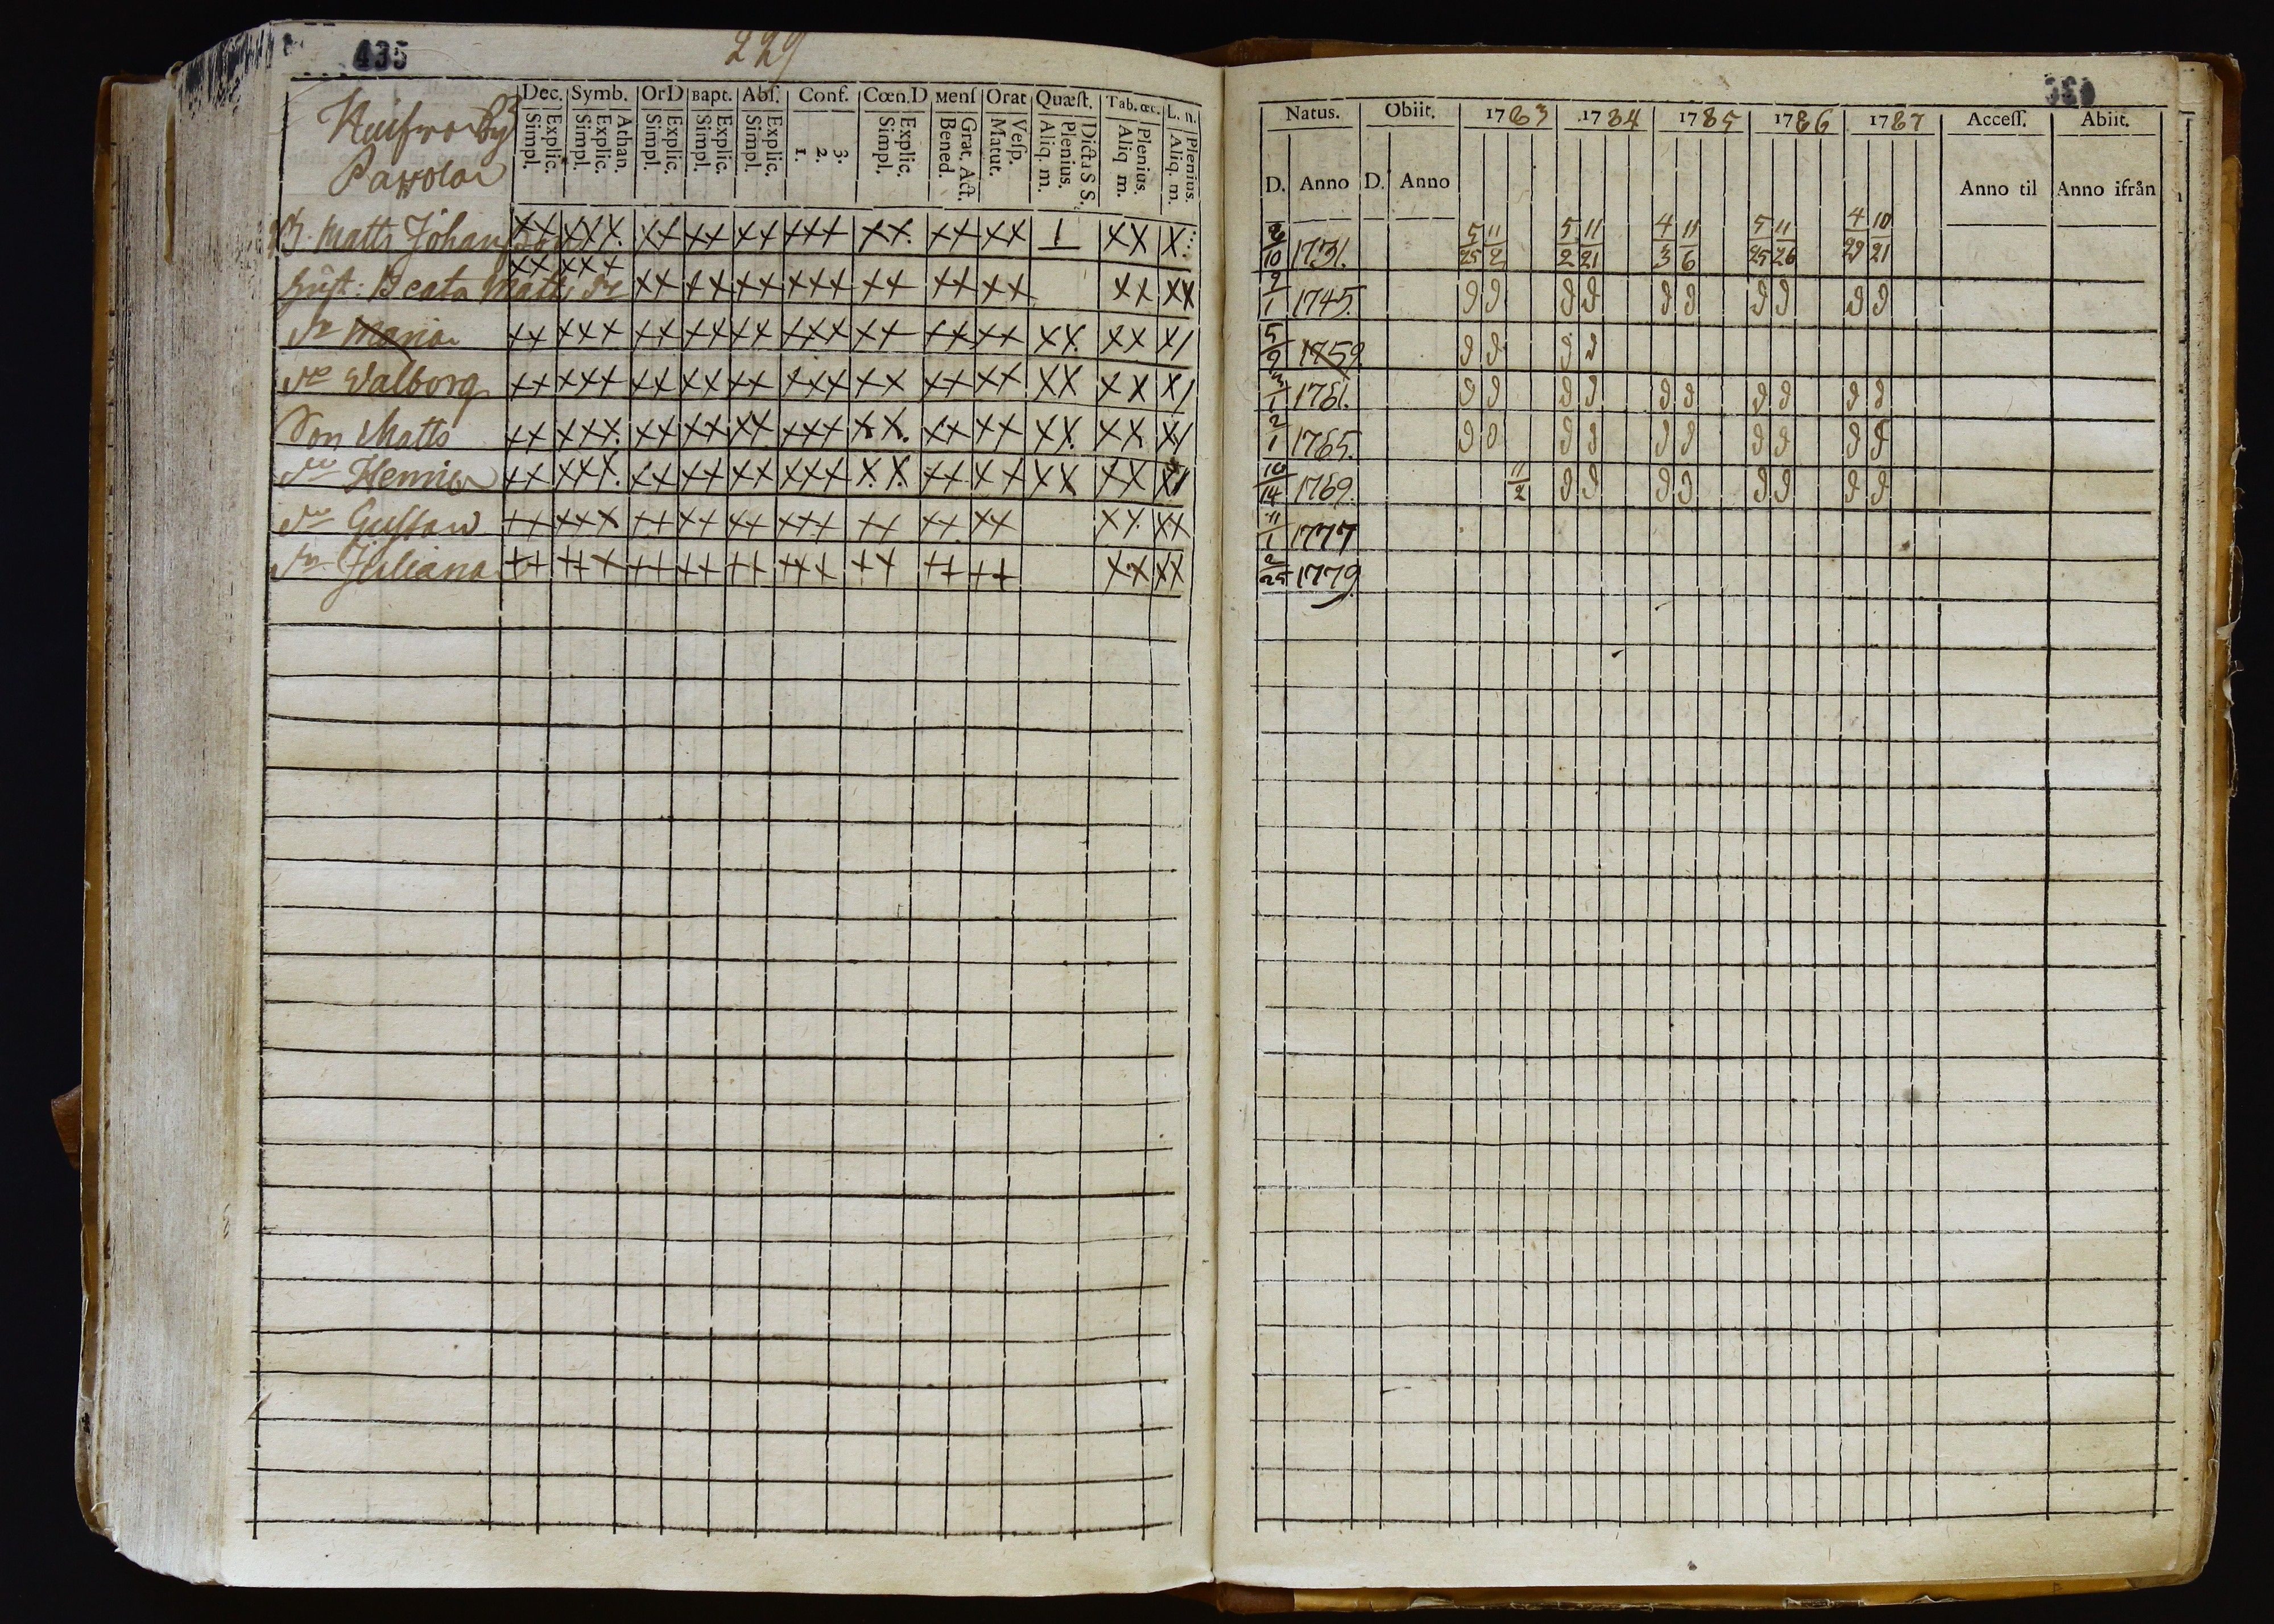 435
229
Dec. Symb. OrD Bapt. Abſ. Conf. Cœn.D Menſ Orat Quæſt. Tab. œc. L. n.
Explic. Simpl. Athan. Explic. Simpl. Explic. Simpl. Explic. Simpl. Explic. Simpl. 3. 2. 1. Explic. Simpl. Grat. Act. Bened. Veſp. Matut. Dicta S S. Plenius. Aliq. m. Plenius. Aliq m. Plenius. Aliq. m.
By
Matts Johansson XX XXX XX XX XX XXX XX XX XX 1 XX X
Hust: Beata Matts Dr XX XXX XX XX XX XXX XX XX XX XX XX
Dr Maria XX XXX XX XX XX XXX XX XX XX XX XX X/
Dr Valborg XX XXX XX XX XX XXX XX XX XX XX XX X/
Son Matts XX XXX XX XX XX XXX XX XX XX XX XX X/
Henric XX XXX XX XX XX XXX XX XX XX XX XX X/
Gustaw XX XXX XX XX XX XXX XX XX XX XX XX
Dr Juliana XX XXX XX XX XX XXX XX XX XX XX XX
Natus. Obiit. 1783 1784 1785 1786 1787 Acceſſ. Abiit.
D. Anno D. Anno Anno til Anno ifrån
1731. 5/25 11/2 5/2 11/21 4/3 11/6 5/25 11/26 4/29 10/21
2/1 1745.
5/9 1759.
1761.
2/1 1765.
10/14 1769. 11/2
11/1 1777
2/25 1779